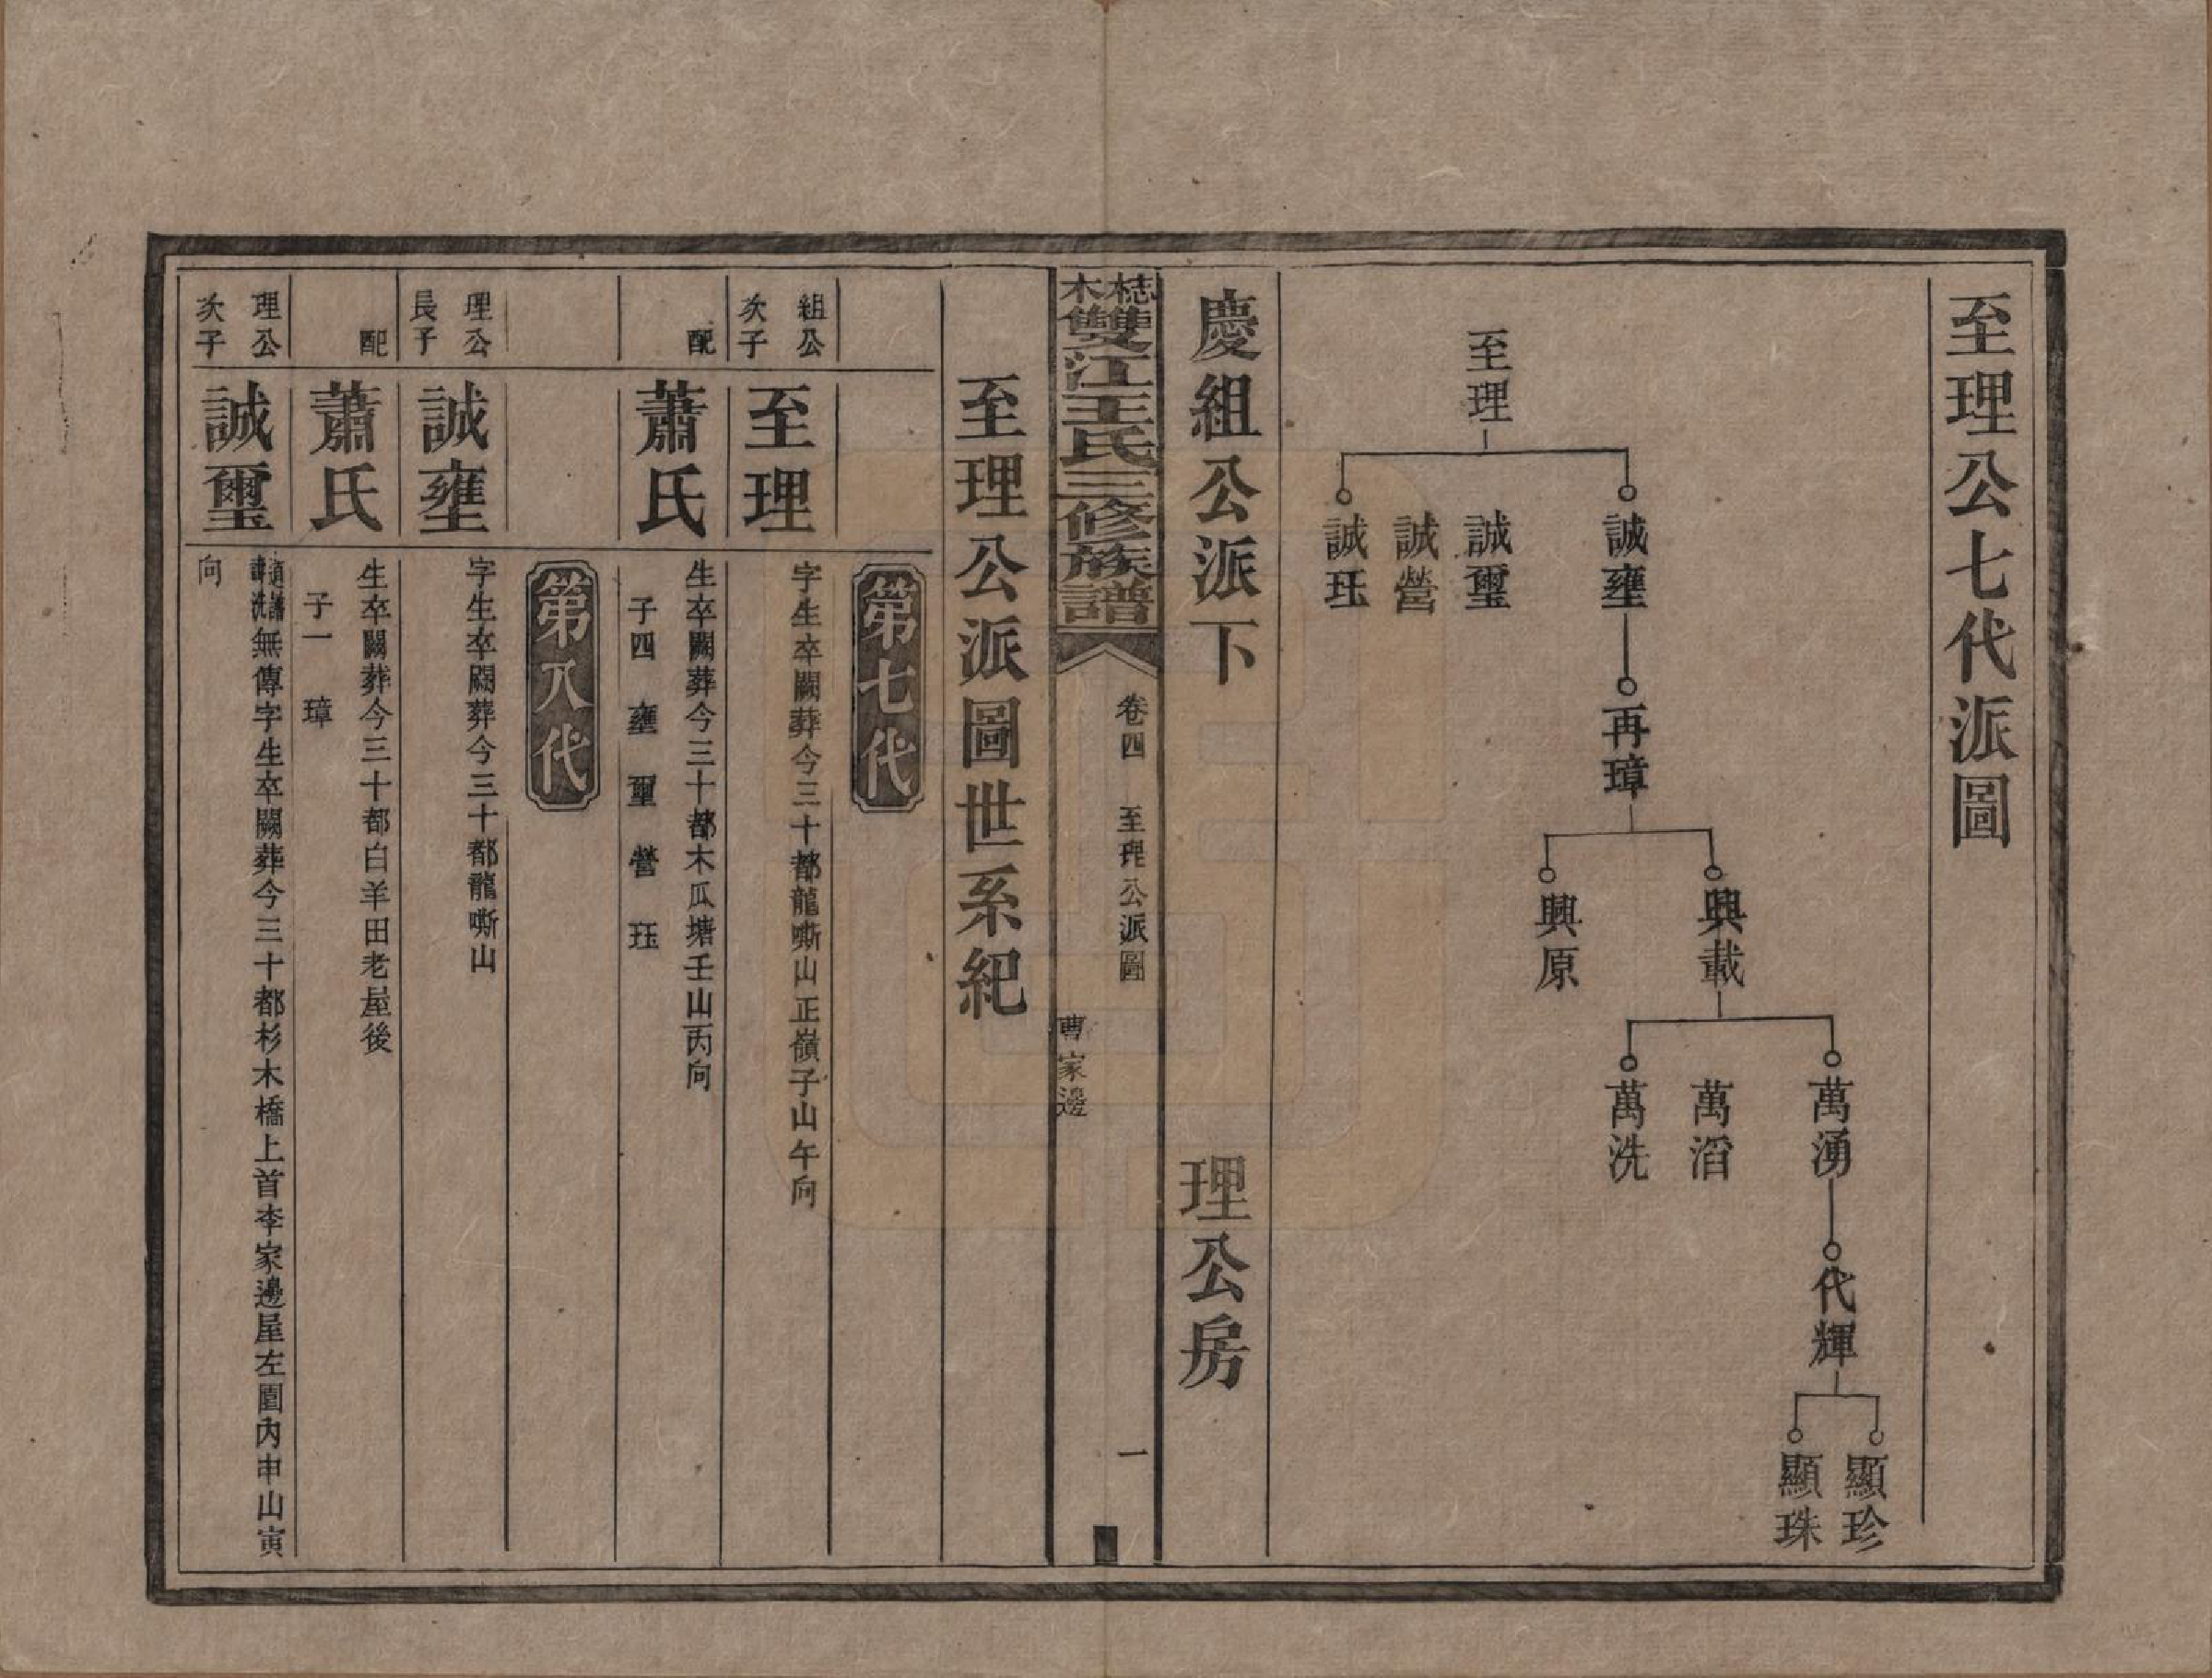 至理公七代派圖
至理
誠壅
誠璽
誠營
誠珏
再璋
興載
興原
萬湧
萬滔
萬洗
代輝
顯珍
顯珠
慶組公派下 理公房
木梽雙江王氏三修族譜
卷四 至理公派圖
曹家邊
一
至理公派圖世系紀
第七代
組公次子
至理
字生卒闕葬今三十都龍嘶山正嶺子山午向
配
蕭氏
生卒闕葬今三十都木瓜塘壬山丙向
子四 壅 璽 營 珏
第八代
理公長子
誠壅
字生卒闕葬今三十都龍嘶山
配
蕭氏
生卒闕葬今三十都白羊田老屋後
子一 璋
理公次子
誠璽
無傳字生卒闕葬今三十都杉木橋上首李家邊屋左園內申山寅
向